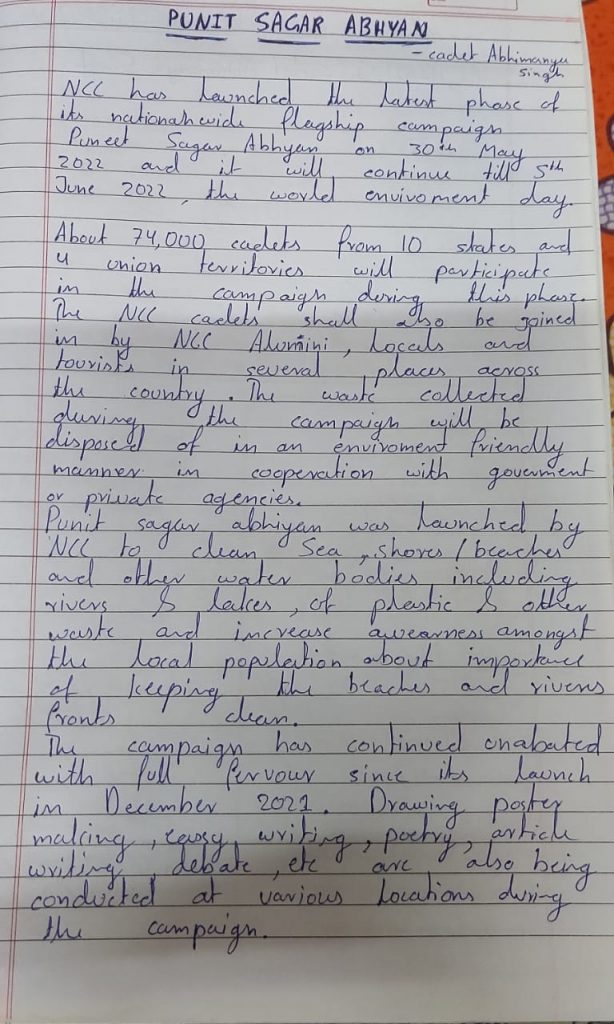 PUNIT SAGAR ABHYAN
- cadet Abhimanyu
Singh
NCC has launched the latest phase of
its nationahwide flagship campaign
Puneet Sagar Abhyan on 30th May
2022 and it will continue till 5th
June 2022, the world enviroment day.
About 74,000 cadets from 10 states and
4 union territories will participate
in the campaign during this phase.
The NCC cadets shall also be joined
in by NCC Alumini, locals and
tourists in several places across
the country. The waste collected
during the campaign will be
disposed of in an enviroment friendly
manner in cooperation with goverment
or private agencies.
Punit sagar abhiyan was launched by
NCC to clean Sea, shores/beaches
and other water bodies including
rivers & lakes, of plastic & other
waste and increase awearness amongst
the local population about importance
of keeping the beaches and rivers
fronts clean.
The campaign has continued unabated
with full fervour since its launch
in December 2021. Drawing poster
making, easy writing, poetry, article
writing, debate, etc are also being
conducted at various locations during
the campaign.